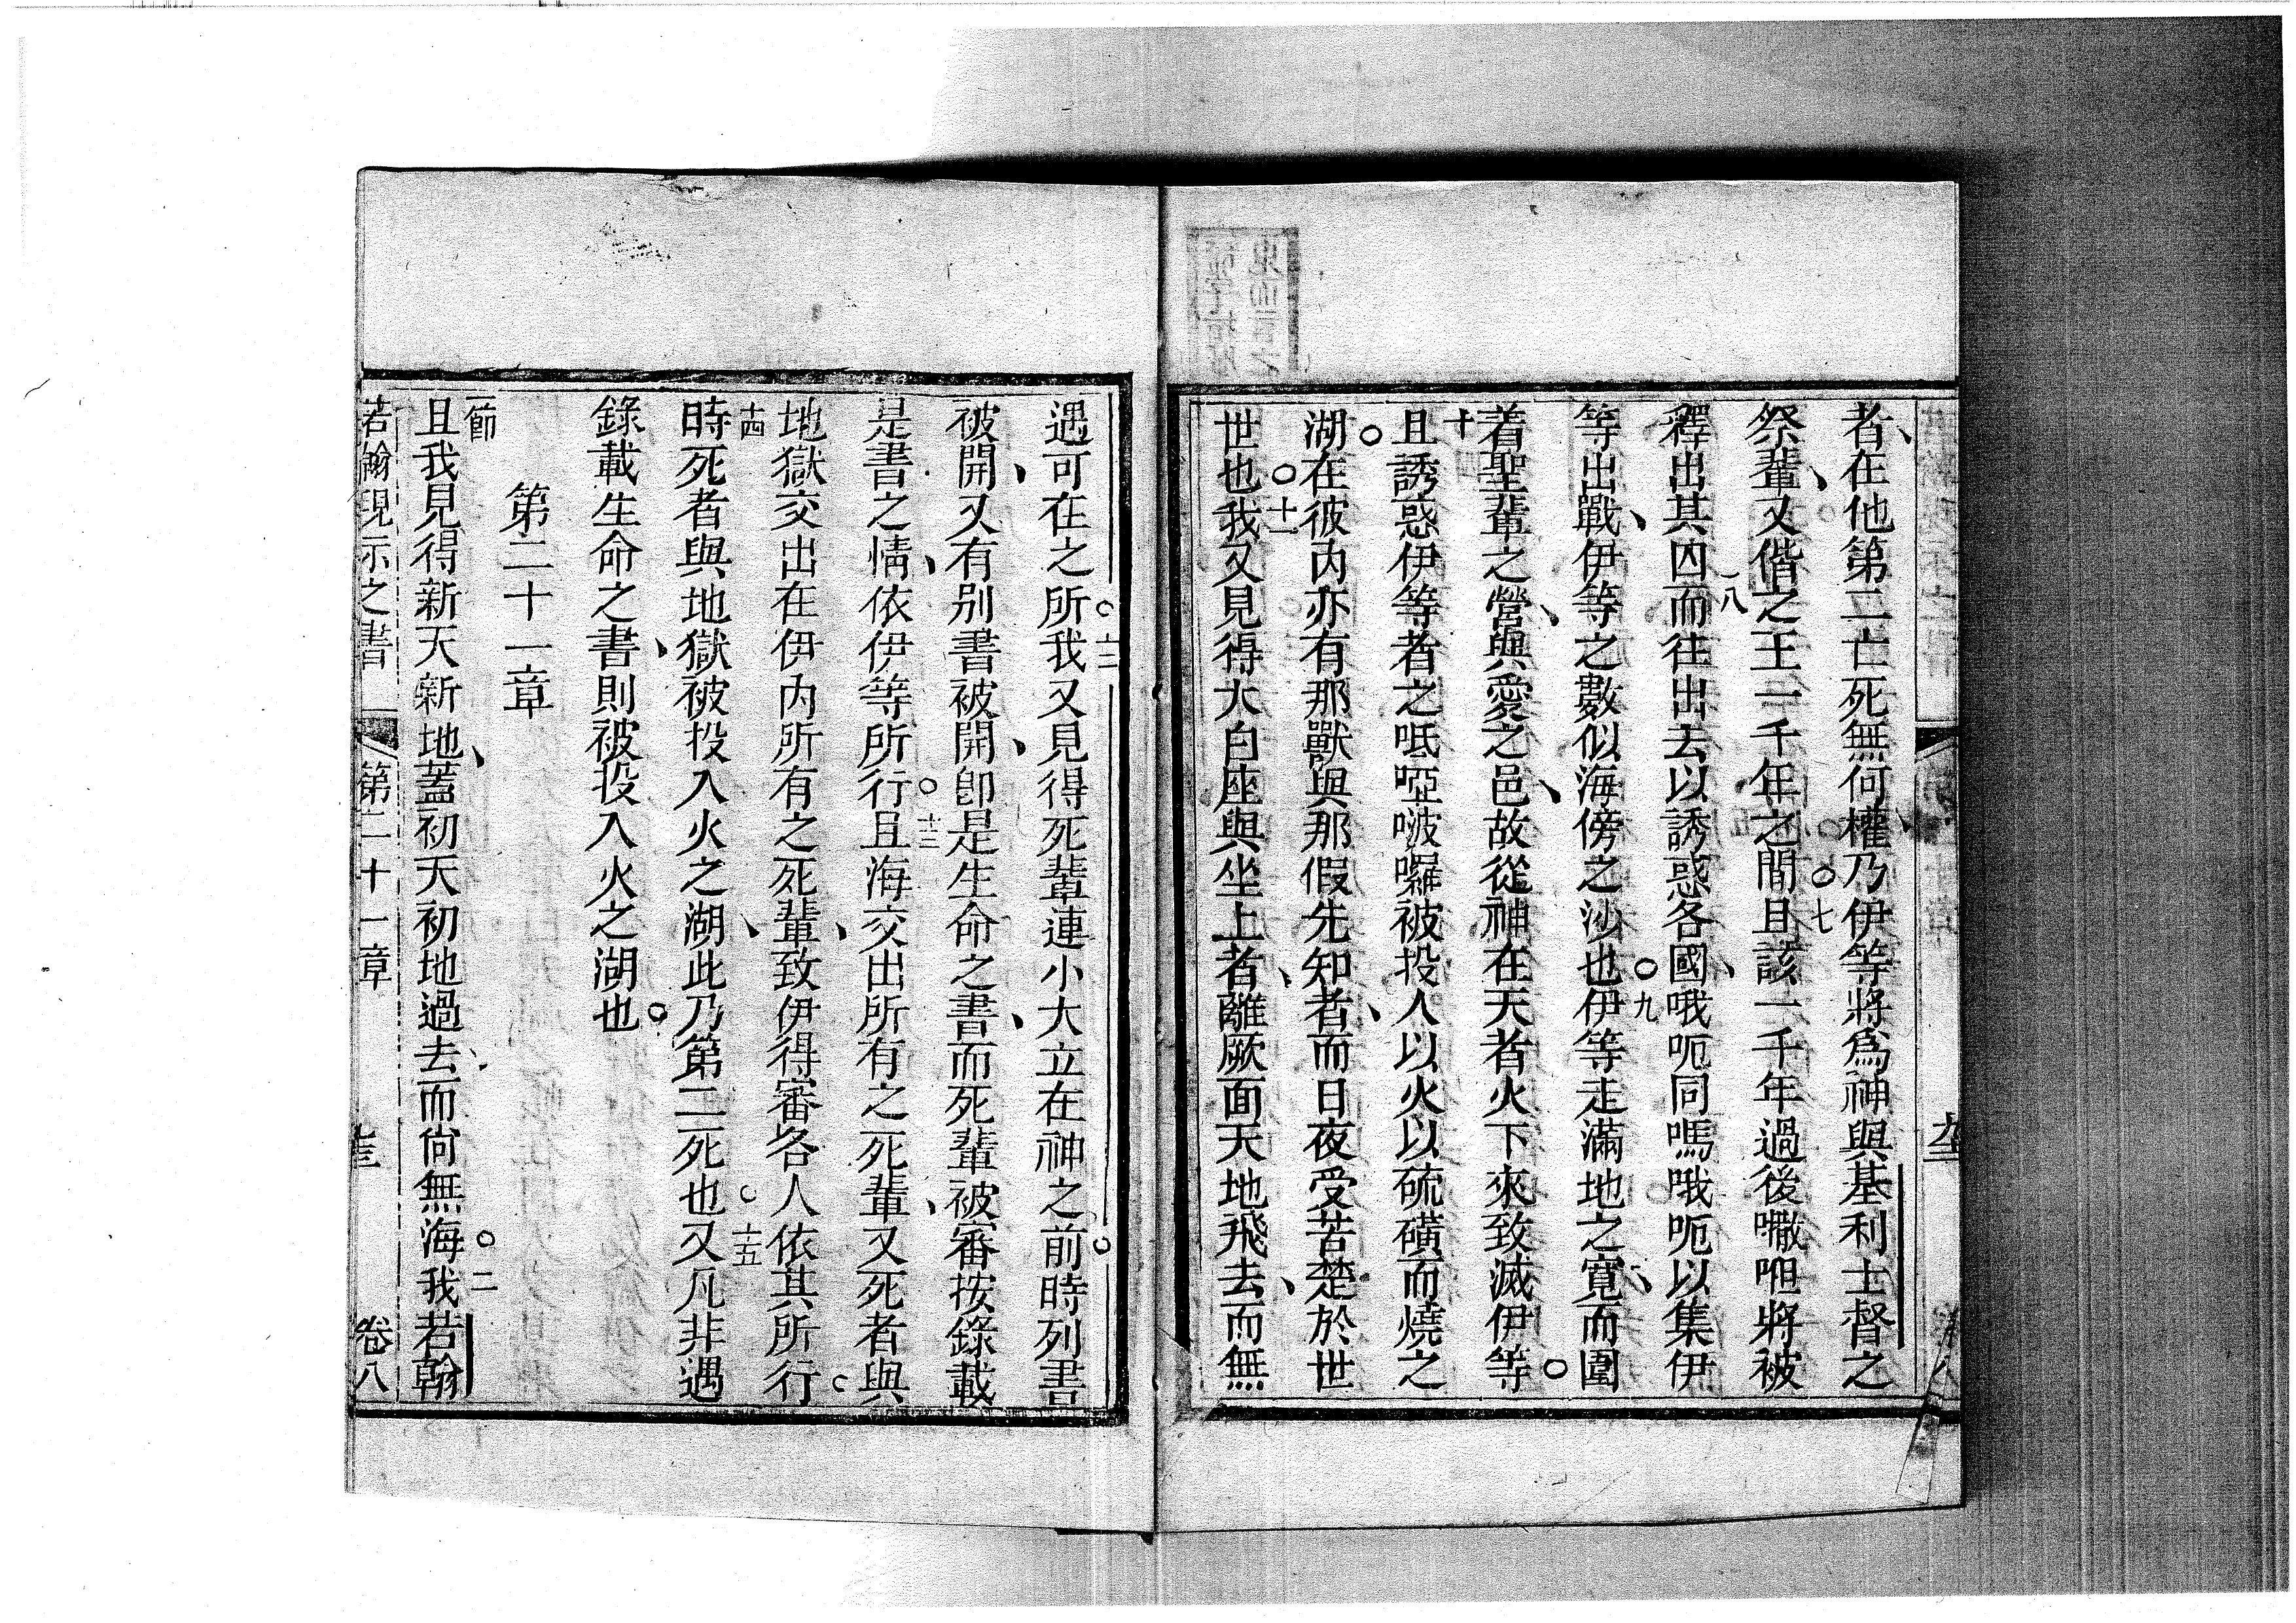 者、在他第二亡死無何權、乃伊等將爲神與基利士督之
祭輩、又偕之王一千年之間○七且該一千年過後嚫呾將被
八釋出其囚而往出去以誘惑各國、哦呃同嗎哦呃以集伊
等出戰、伊等之數似海傍之沙也○九伊等走滿地之寬、而圍
着聖輩之營、與愛之邑、故從神在天者火下來致滅伊等○
十且誘惑伊等者之呧啞啵囉被投入以火以硫磺而燒之
湖○在彼內亦有那獸與那假先知者、而日夜受苦楚於世
世也○十一我又見得大白座與坐上者、離厥面天地飛去、而無
遇可在之所○十二我又見得死輩連小大立在神之前○時列書
被開、又有別書被開、卽是生命之書、而死輩被審按錄載
是書之情、依伊等所行○十三且海交出所有之死輩、又死者與
地獄交出在伊內所有之死輩、致伊得審各人依其所行○
十四時死者與地獄被投入火之湖、此乃第二死也○十五又凡非遇
錄載生命之書、則被投入火之湖也○
第二十一章
一節且我見得新天新地、蓋初天初地過去、而尙無海○二我若翰
若翰現示之書 第二十一章 卷八